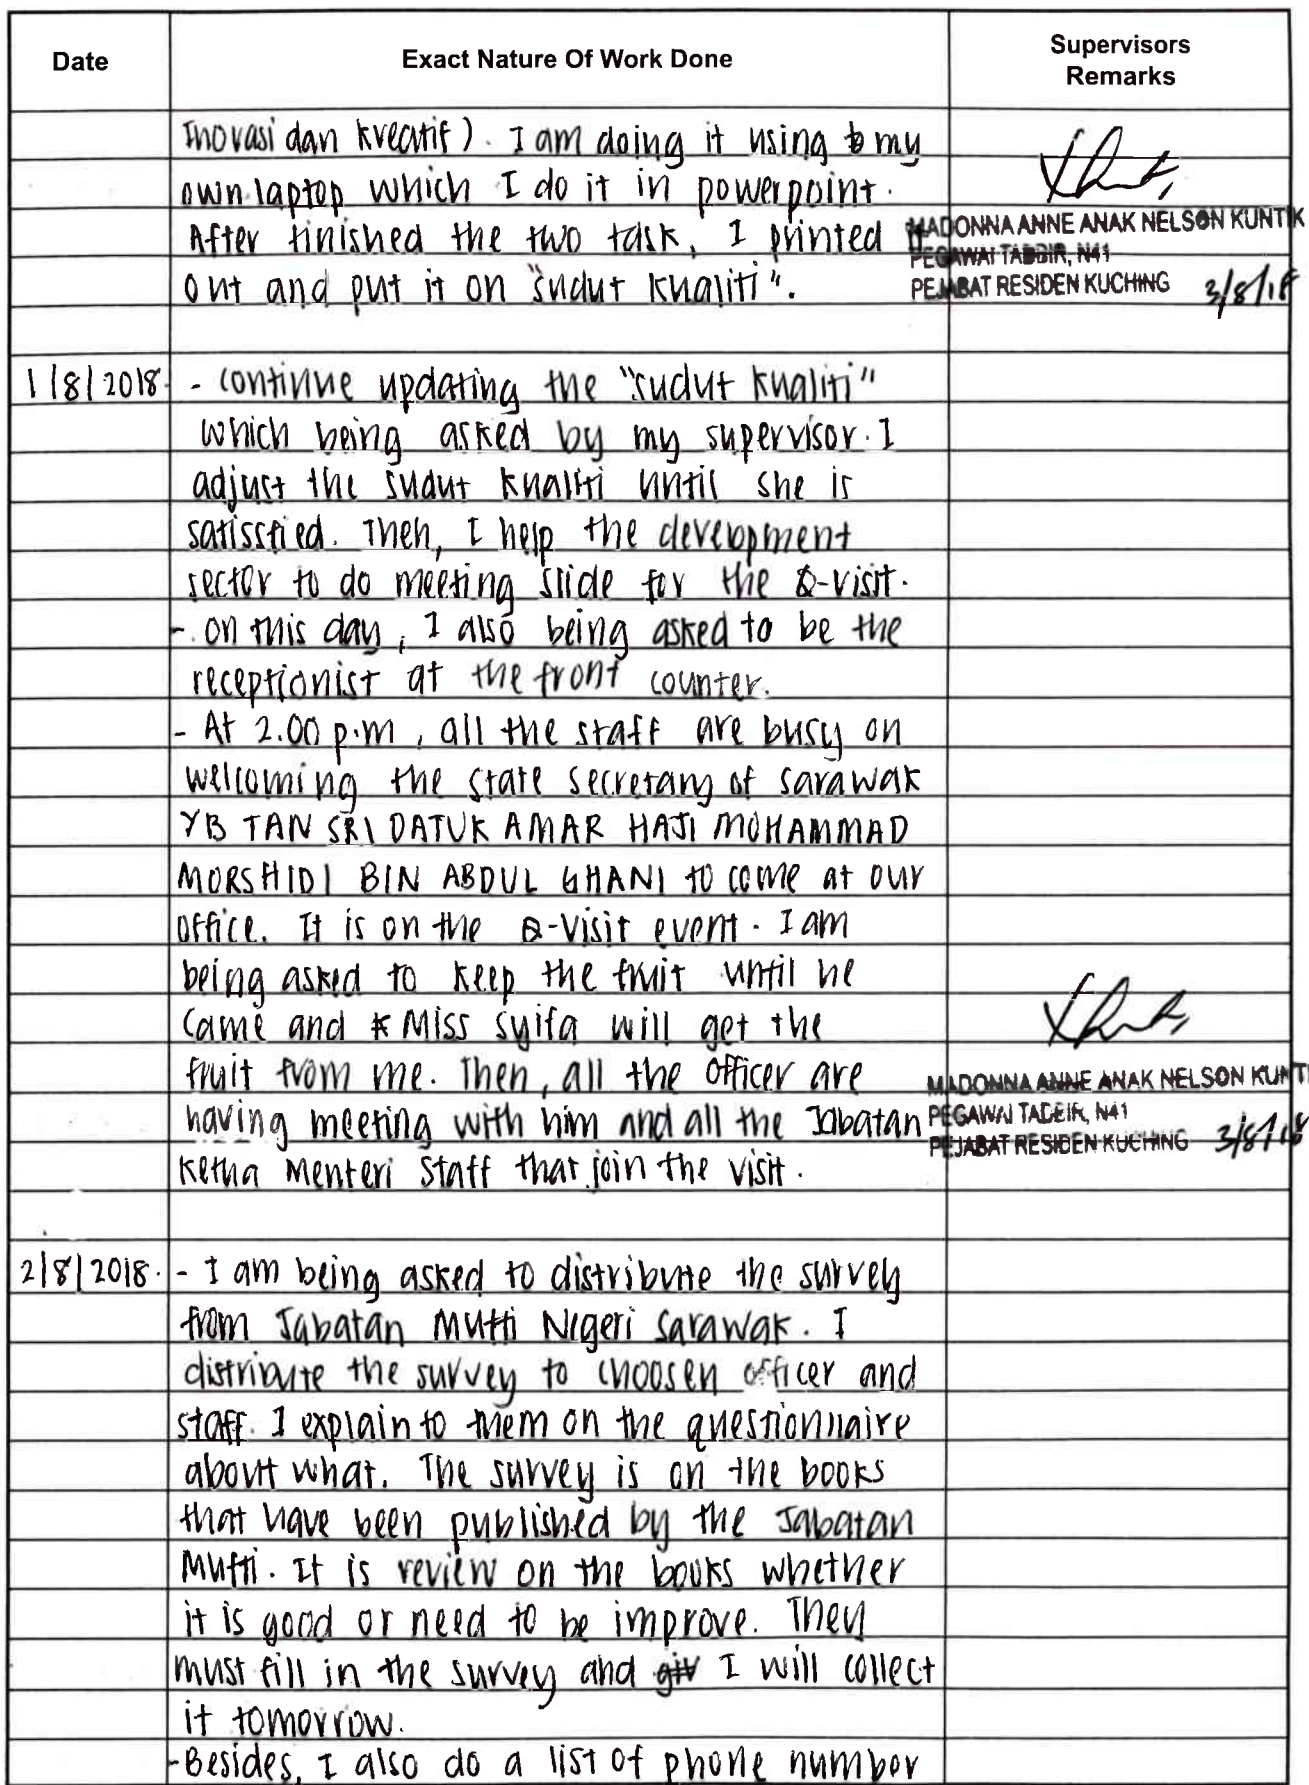 Date
Exact Nature Of Work Done
Supervisors
Remarks
Inovasi dan kreatif). I am doing it using my
own laptop which I do it in powerpoint.
After finished the two task, I printed
out and put it on "sudut kualiti".
MADONNA ANNE ANAK NELSON KUNTIK
PEGAWAI TADBIR, N41
PEJABAT RESIDEN KUCHING 3/8/18
1/8/2018 - Continue updating the "sudut kualiti"
which being asked by my supervisor. I
adjust the sudut kualiti until she is
satissfied. Then, I help the development
sector to do meeting slide for the Q-visit.
- On this day, I also being asked to be the
receptionist at the front counter.
- At 2.00 p.m, all the staff are busy on
welcoming the state secretary of sarawak
YB TAN SRI DATUK AMAR HAJI MOHAMMAD
MORSHIDI BIN ABDUL GHANI to come at our
office. It is on the Q-Visit event. I am
being asked to keep the fruit until he
came and Miss Syifa will get the
fruit from me. Then, all the officer are
having meeting with him and all the Jabatan
Ketua Menteri staff that join the visit.
MADONNA ANNE ANAK NELSON KUNTI
PEGAWAI TADBIR, N41
PEJABAT RESIDEN KUCHING 3/8/18
2/8/2018. - I am being asked to distribute the survey
from Jabatan Mufti Negeri Sarawak. I
distribute the survey to choosen officer and
staff. I explain to them on the questionnaire
about what. The survey is on the books
that have been published by the Jabatan
Mufti. It is review on the books whether
it is good or need to be improve. They
must fill in the survey and giv I will collect
it tomorrow.
-Besides, I also do a list of phone number